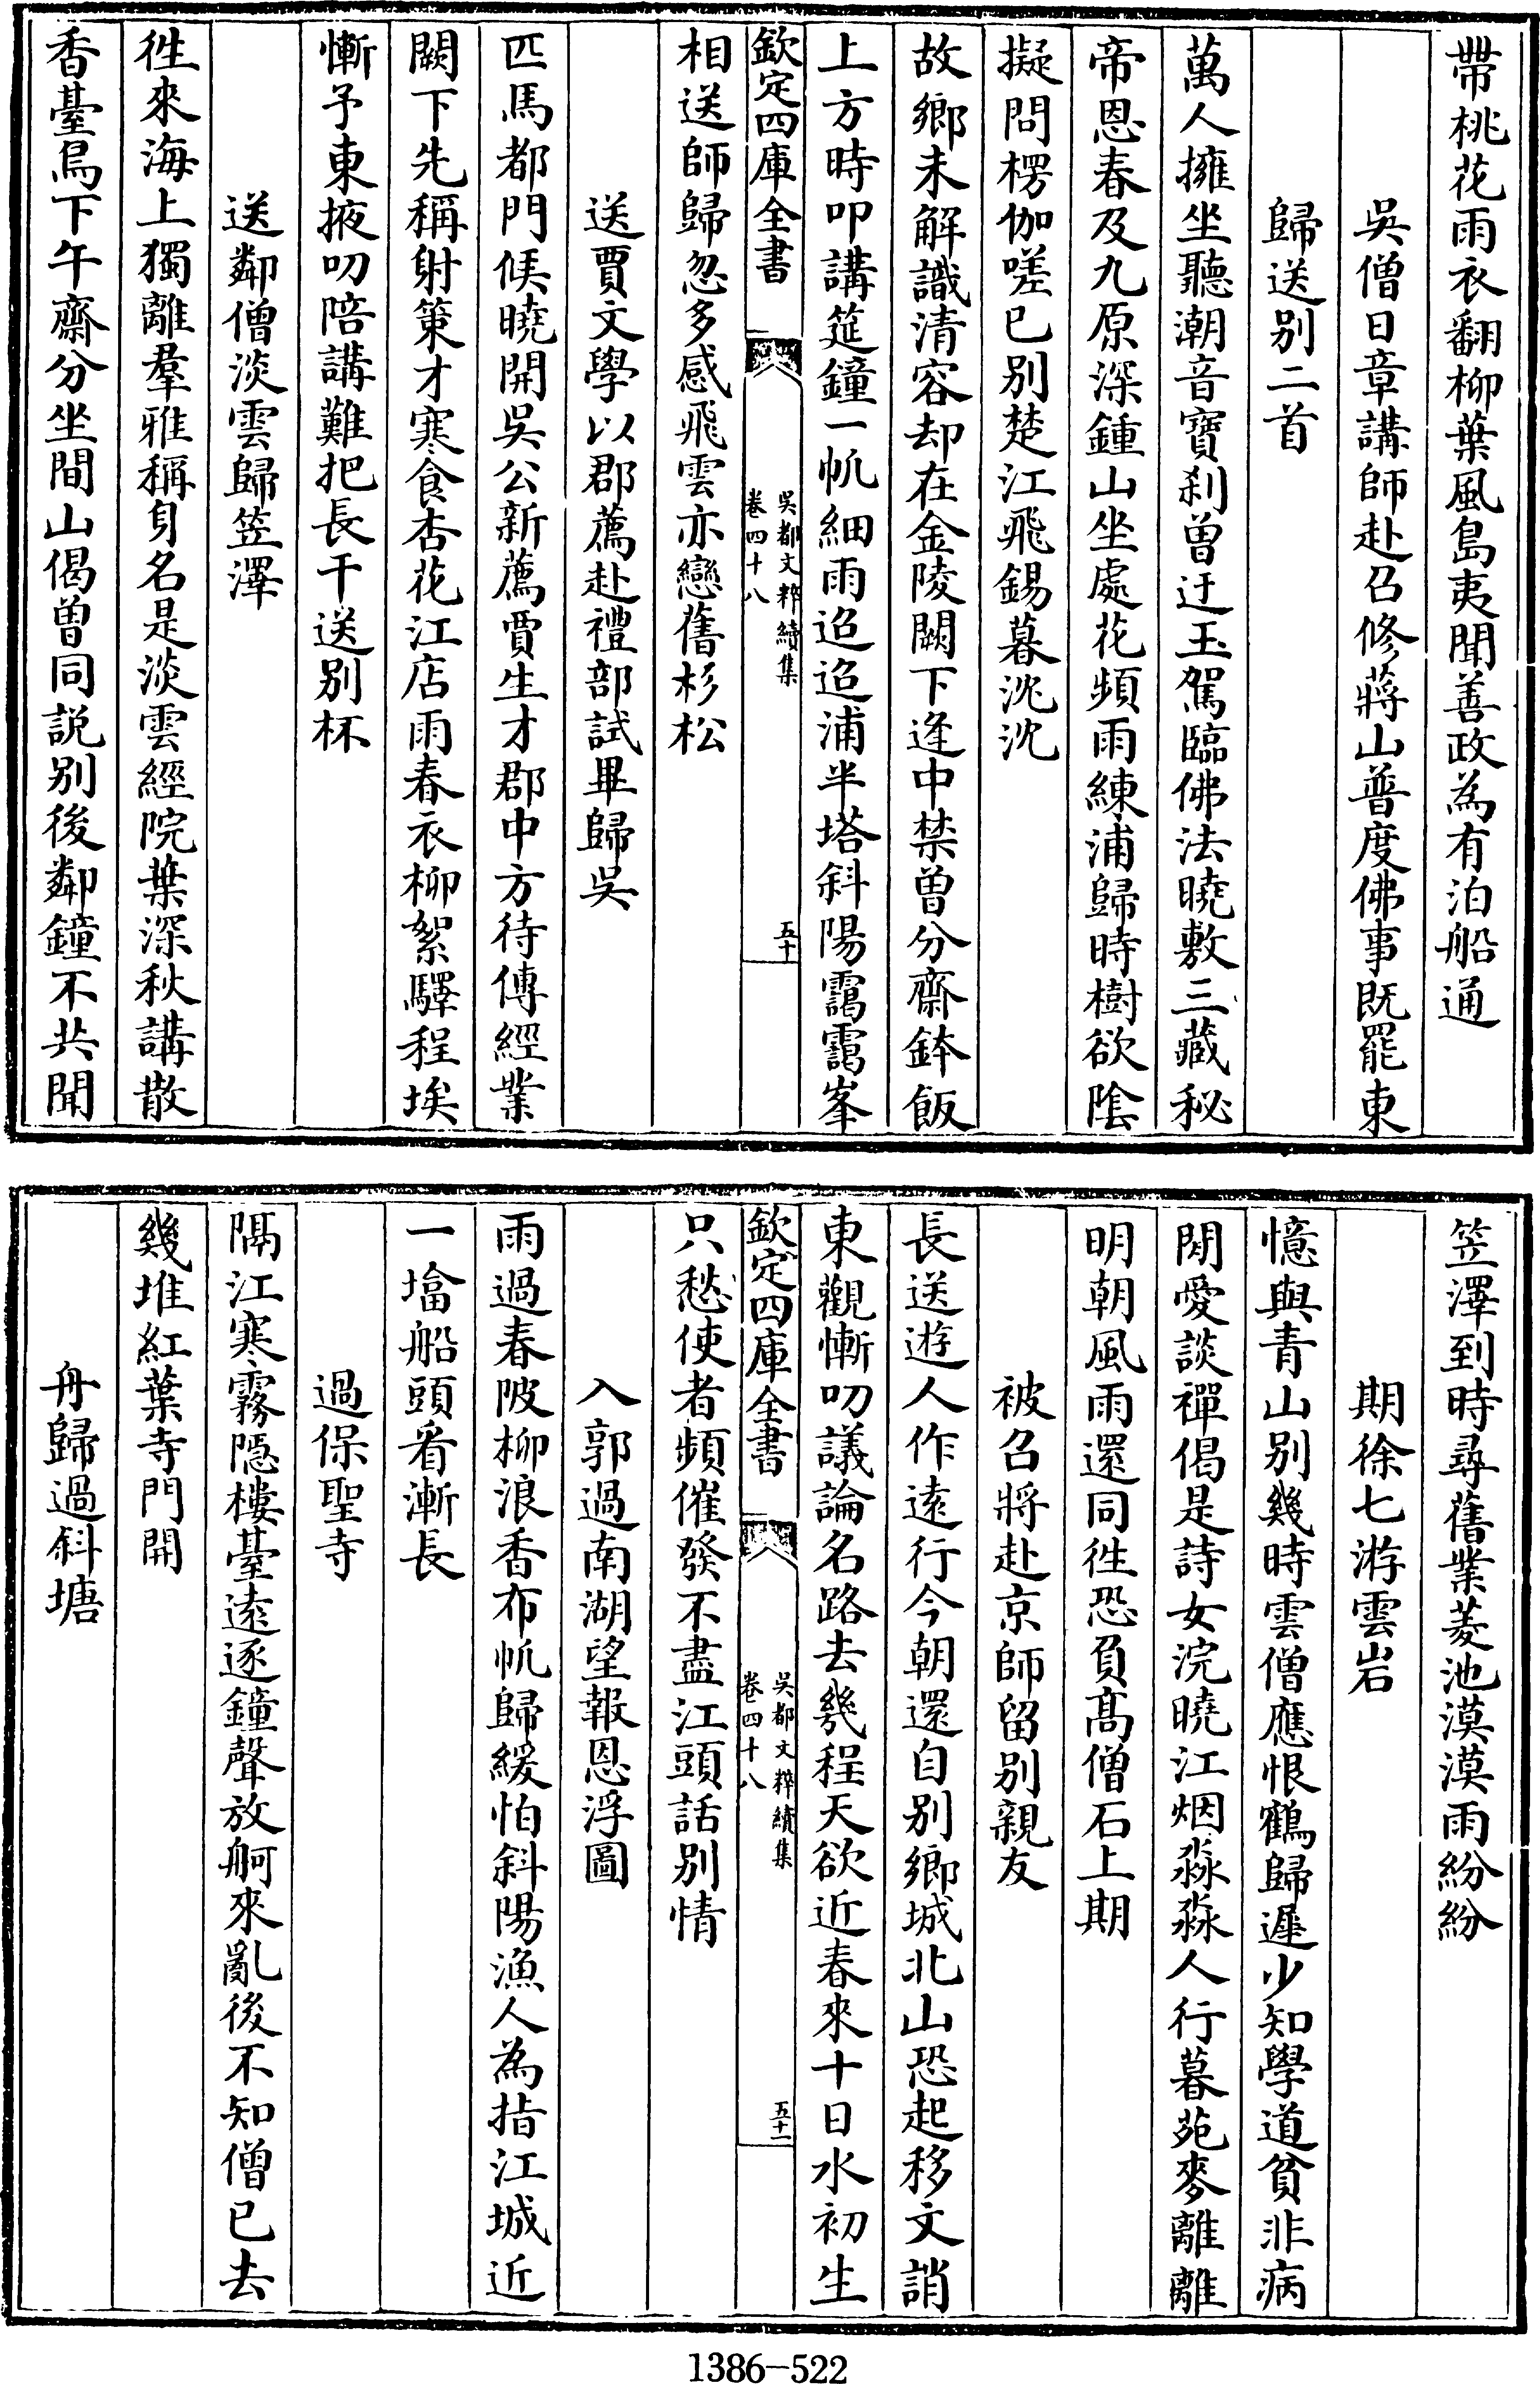 帶桃花雨衣翻柳葉風島夷聞善政為有泊船通
吳僧日章講師赴召修蔣山普度佛事既罷東
歸送别二首
萬人擁坐聽潮音寶刹曽迂玉駕臨佛法曉敷三藏秘
帝恩春及九原深鍾山坐處花頻雨練浦歸時樹欲隂
擬問楞伽嗟已别楚江飛錫暮沈沈
故鄉未解識清容却在金陵闕下逢中禁曽分齋鉢飯
上方時叩講筵鐘一帆細雨迢迢浦半塔斜陽靄靄峯
欽定四庫全書
吳都文粹續集
卷四十八
五十
相送師歸忽多感飛雲亦戀舊杉松
送賈文學以郡薦赴禮部試畢歸吳
匹馬都門候曉開吳公新薦賈生才郡中方待傳經業
闕下先稱射策才寒食杏花江店雨春衣柳絮驛程埃
慚予東掖叨陪講難把長干送别杯
送鄰僧淡雲歸笠澤
徃來海上獨離羣雅稱身名是淡雲經院葉深秋講散
香臺鳥下午齋分坐間山偈曽同説别後鄰鐘不共聞
笠澤到時尋舊業菱池漠漠雨紛紛
期徐七游雲岩
憶與青山别幾時雲僧應恨鶴歸遲少知學道貧非病
閒愛談禪偈是詩女浣曉江烟淼淼人行暮苑麥離離
明朝風雨還同徃恐負髙僧石上期
被召將赴京師留别親友
長送遊人作逺行今朝還自别鄉城北山恐起移文誚
東觀慚叨議論名路去幾程天欲近春來十日水初生
欽定四庫全書
吳都文粹續集
卷四十八
五十一
只愁使者頻催發不盡江頭話别情
入郭過南湖望報恩浮圖
雨過春陂柳浪香布帆歸緩怕斜陽漁人為指江城近
一㙮船頭看漸長
過保聖寺
隔江寒霧隠樓臺逺逐鐘聲放舸來亂後不知僧已去
幾堆紅葉寺門開
舟歸過斜塘
1386—522